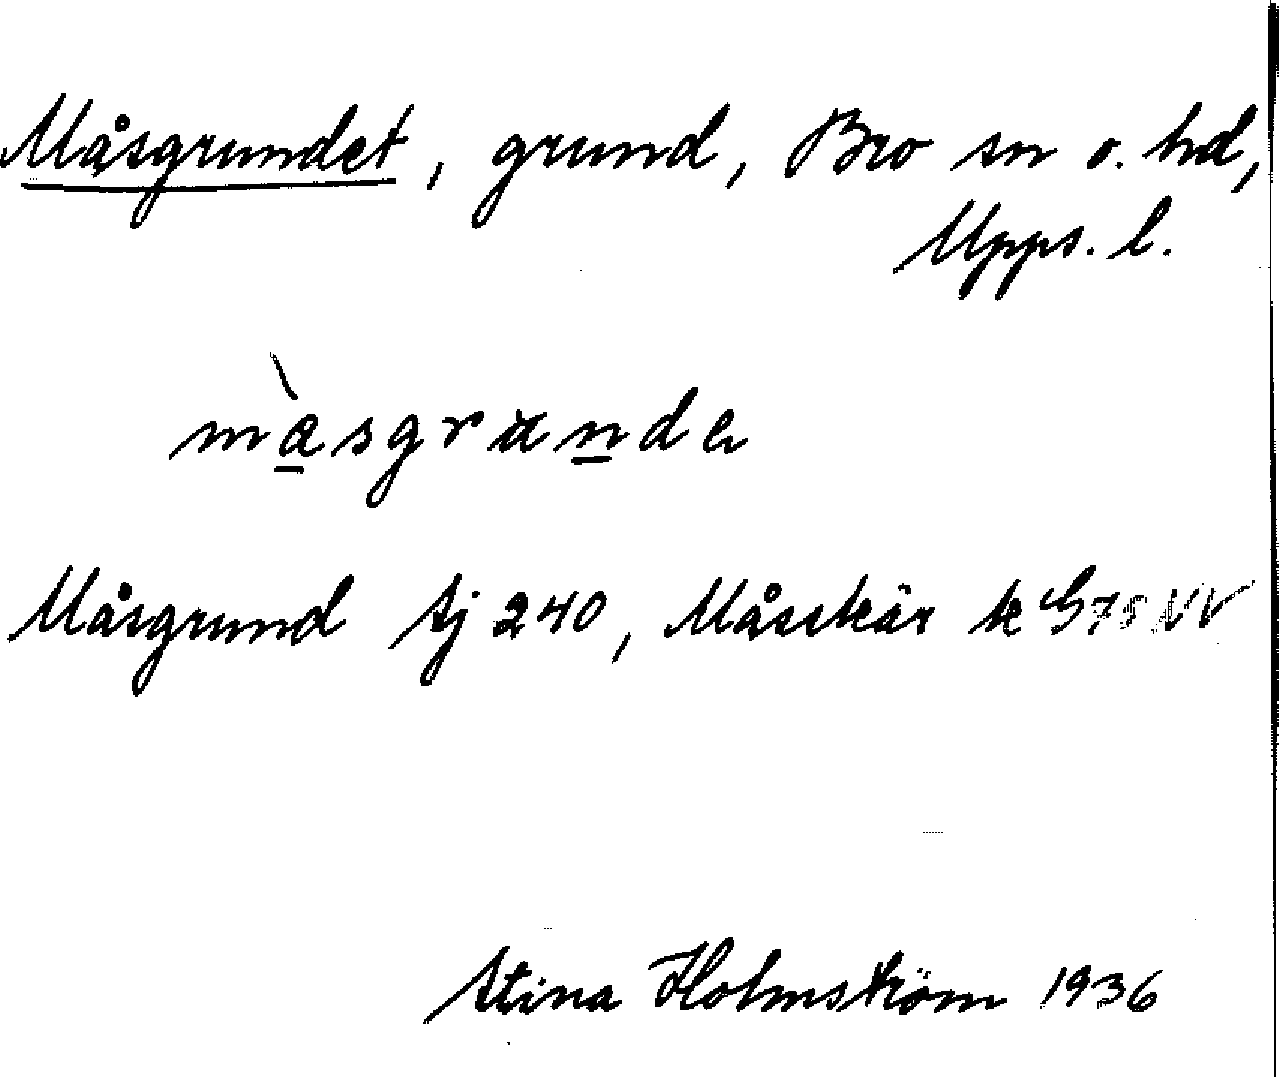 Måsgrundet, grund, Bro sn o. hd,
Upps. l.
màsgrunde
Måsgrund Sj 240, Måsskär k G 75 NV
Stina Holmström 1936